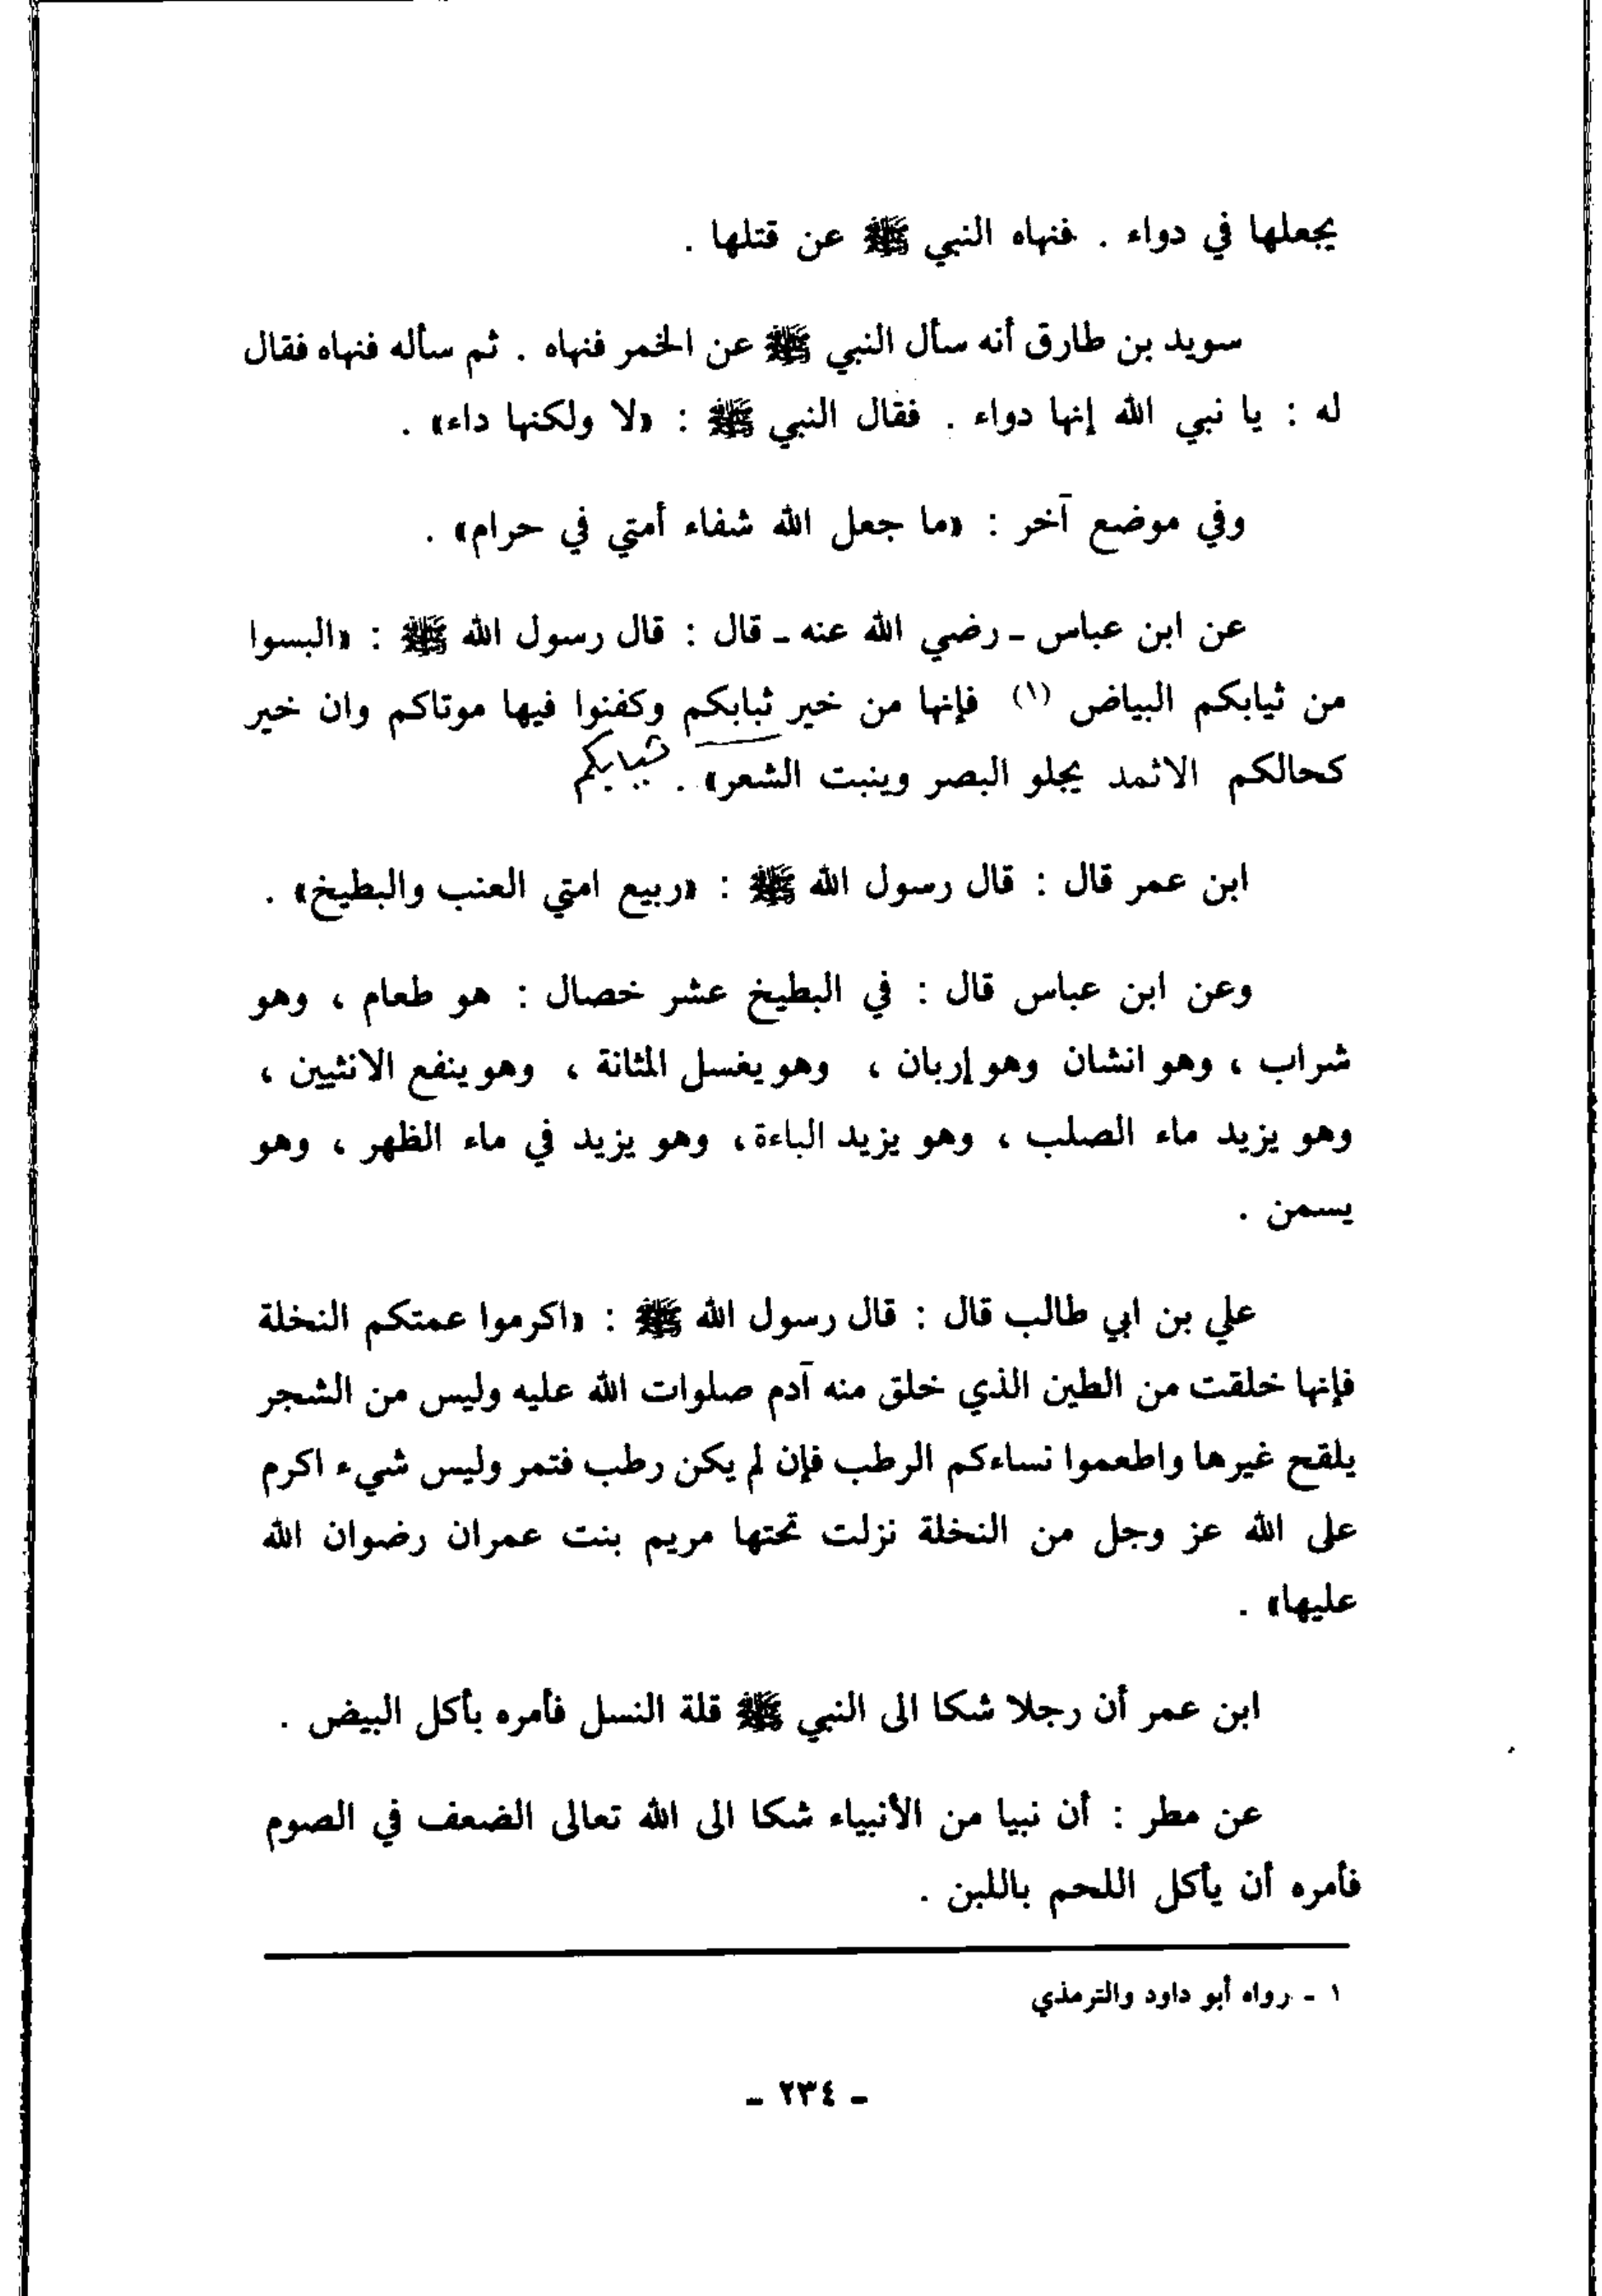 يجعلها في دواء . فنهاه النبي ﷺ عن قتلها .
سويد بن طارق أنه سأل النبي ﷺ عن الخمر فنهاه . ثم سأله فنهاه فقال
له : يا نبي الله إنها دواء . فقال النبي ﷺ : «لا ولكنها داء» .
وفي موضع آخر : «ما جعل الله شفاء أمتي في حرام» .
عن ابن عباس ـ رضي الله عنه ـ قال : قال رسول الله ﷺ : «البسوا
من ثيابكم البياض (١) فإنها من خير ثبابكم وكفنوا فيها موتاكم وان خير
كحالكم الاثمد يجلو البصر وينبت الشعر» .
ابن عمر قال : قال رسول الله ﷺ : «ربيع امتي العنب والبطيخ» .
وعن ابن عباس قال : في البطيخ عشر خصال : هو طعام ، وهو
شراب ، وهو انشان وهو إربان ، وهو يغسل المثانة ، وهو ينفع الانثيين ،
وهو يزيد ماء الصلب ، وهو يزيد الباءة ، وهو يزيد في ماء الظهر ، وهو
يسمن .
علي بن ابي طالب قال : قال رسول الله ﷺ : «اكرموا عمتكم النخلة
فإنها خلقت من الطين الذي خلق منه آدم صلوات الله عليه وليس من الشجر
يلقح غيرها واطعموا نساءكم الرطب فإن لم يكن رطب فتمر وليس شيء اكرم
على الله عز وجل من النخلة نزلت تحتها مريم بنت عمران رضوان الله
عليها» .
ابن عمر أن رجلا شكا الى النبي ﷺ قلة النسل فأمره بأكل البيض .
عن مطر : أن نبيا من الأنبياء شكا الى الله تعالى الضعف في الصوم
فأمره أن يأكل اللحم باللبن .
١ ـ رواه أبو داود والترمذي
ـ ٢٣٤ ـ